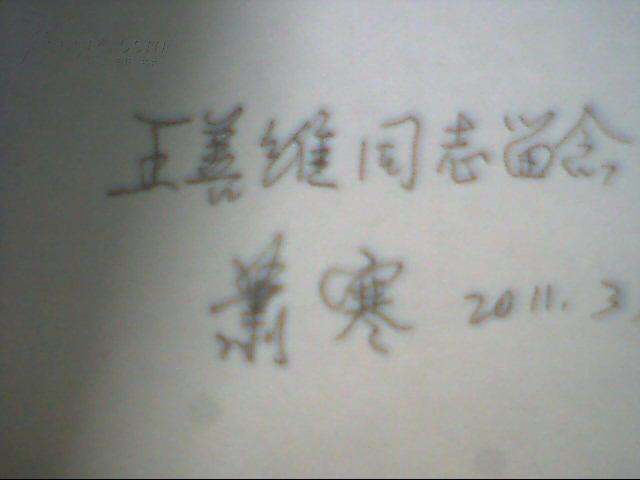 王善维同志留念
萧寒 2011.3.